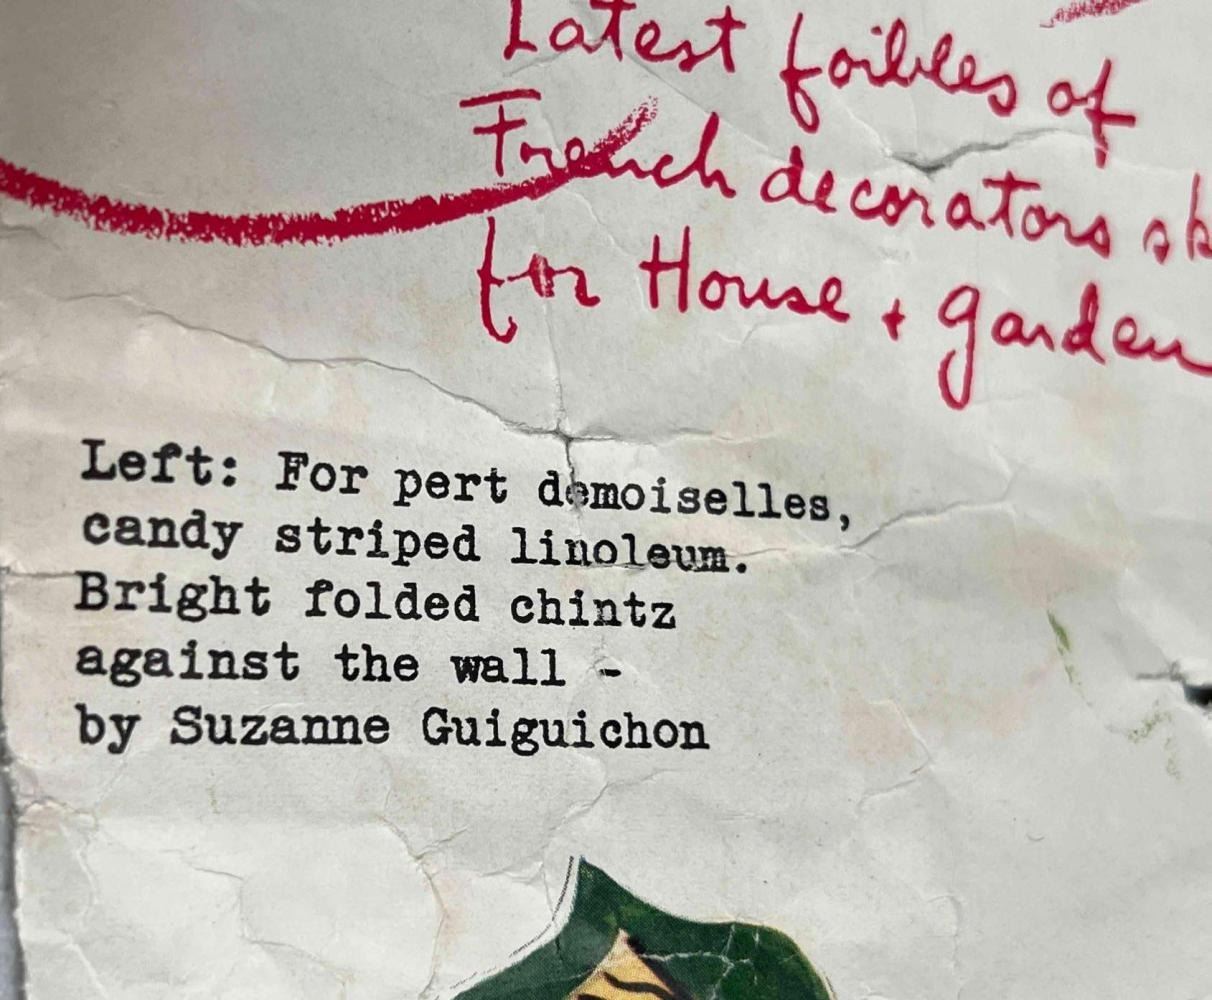 Latest foibles of
French decorators
for House + Garden
Left: For pert demoiselles,
candy striped linoleum.
Bright folded chintz
against the wall -
by Suzanne Guiguichon